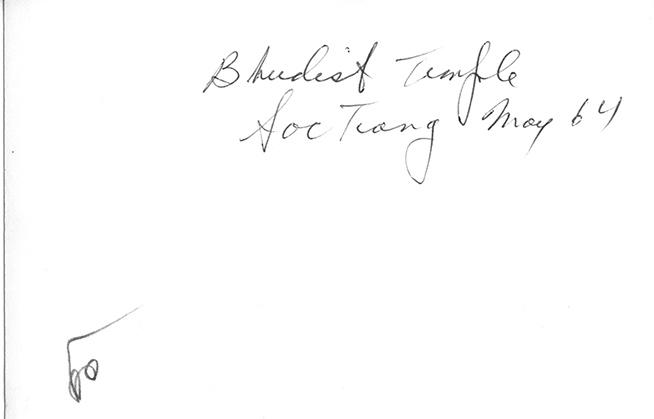 Bhudist Temple
Soc Trang May 64